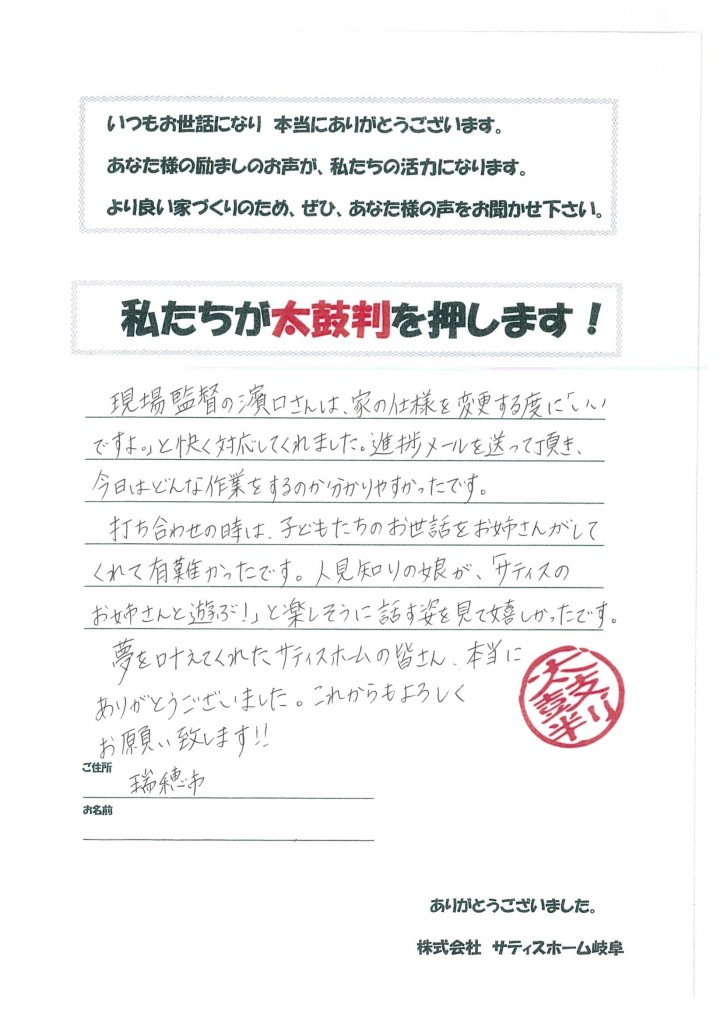 いつもお世話になり 本当にありがとうございます。
あなた様の励ましのお声が、私たちの活力になります。
より良い家づくりのため、ぜひ、あなた様の声をお聞かせ下さい。
私たちが太鼓判を押します！
現場監督の濱口さんは、家の仕様を変更する度に「いい
ですよ。」と快く対応してくれました。進捗メールを送って頂き、
今日はどんな作業をするのか分かりやすかったです。
打ち合わせの時は、子どもたちのお世話をお姉さんがして
くれて有難かったです。人見知りの娘が、「サティスの
お姉さんと遊ぶ！」と楽しそうに話す姿を見て嬉しかったです。
夢を叶えてくれたサティスホームの皆さん、本当に
ありがとうございました。これからもよろしく
お願い致します!!
太鼓判
ご住所
瑞穂市
お名前
ありがとうございました。
株式会社 サティスホーム岐阜